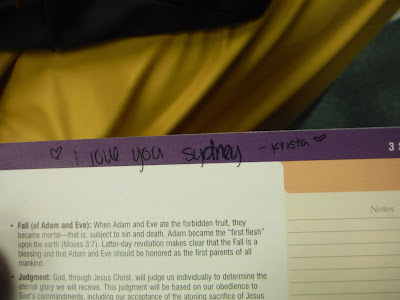 ♡ I love you sydney - Krista ♡
3 S
Notes
• Fall (of Adam and Eve): When Adam and Eve ate the forbidden fruit, they
became mortal—that is, subject to sin and death. Adam became the “first flesh”
upon the earth (Moses 3:7). Latter-day revelation makes clear that the Fall is a
blessing and that Adam and Eve should be honored as the first parents of all
mankind.
• Judgment: God, through Jesus Christ, will judge us individually to determine the
eternal glory we will receive. This judgment will be based on our obedience to
God's commandments, including our acceptance of the atoning sacrifice of Jesus